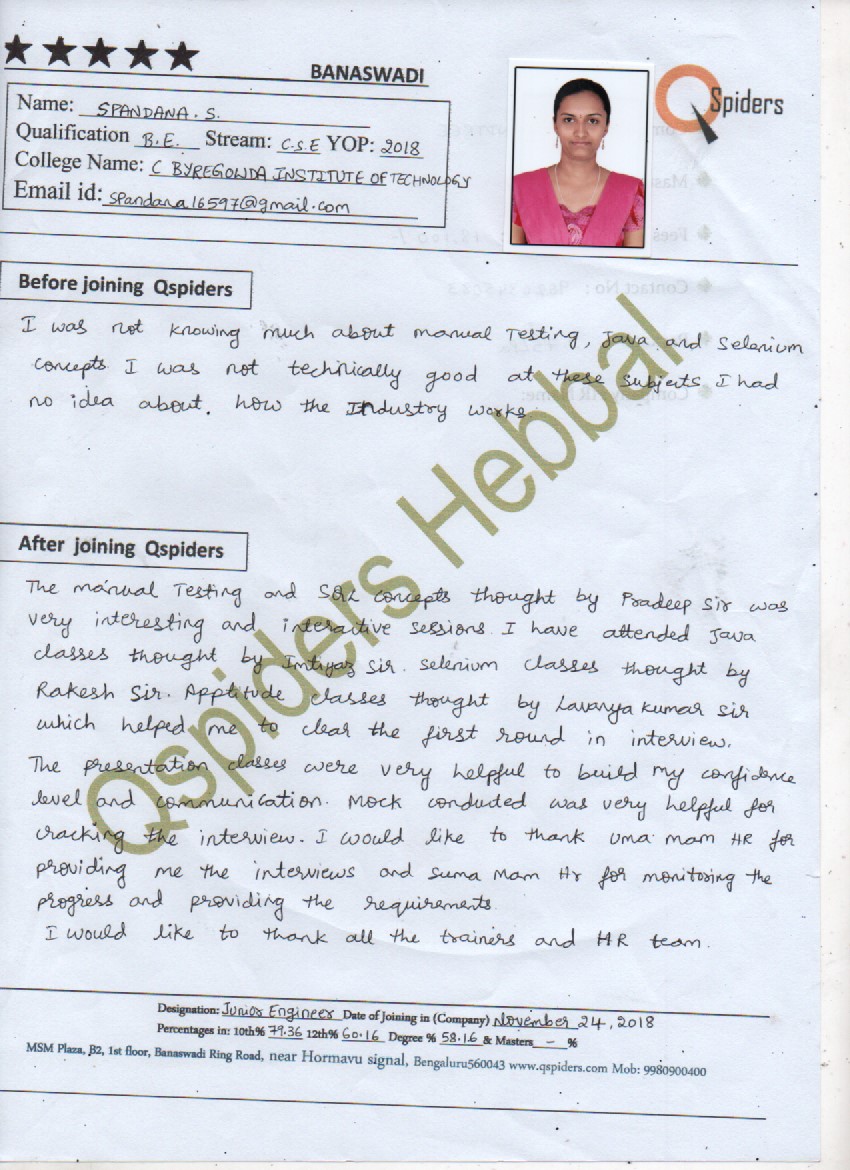 BANASWADI
Name: SPANDANA . S.
Qualification B.E. Stream: C.S.E YOP: 2018
College Name: C BYREGOWDA INSTITUTE OF TECHNOLOGY
Email id: spandana16597@gmail.com
QSpiders
Before joining Qspiders
I was not knowing much about manual Testing, Java and Selenium
concepts I was not technically good at these subjects I had
no idea about. how the Industry works
After joining Qspiders
The manual Testing and SQL concepts thought by Pradeep Sir was
very interesting and interactive sessions. I have attended Java
classes thought by Imtiyaz Sir. Selenium classes thought by
Rakesh Sir. Apptitude classes thought by Lavanya Kumar Sir
which helped me to clear the first round in interview.
The presentation classes were very helpful to build my confidence
level and communication. Mock conducted was very helpful for
cracking the interview. I would like to thank Uma mam HR for
providing me the interviews and Suma Mam Hr for monitoring the
progress and providing the requirements.
I would like to thank all the trainers and HR team.
Designation: Junior Engineer Date of Joining in (Company) November 24, 2018
Percentages in: 10th% 79.36 12th% 60.16 Degree % 58.16 & Masters - %
MSM Plaza, B2, 1st floor, Banaswadi Ring Road, near Hormavu signal, Bengaluru560043 www.qspiders.com Mob: 9980900400
Qspiders Hebbal